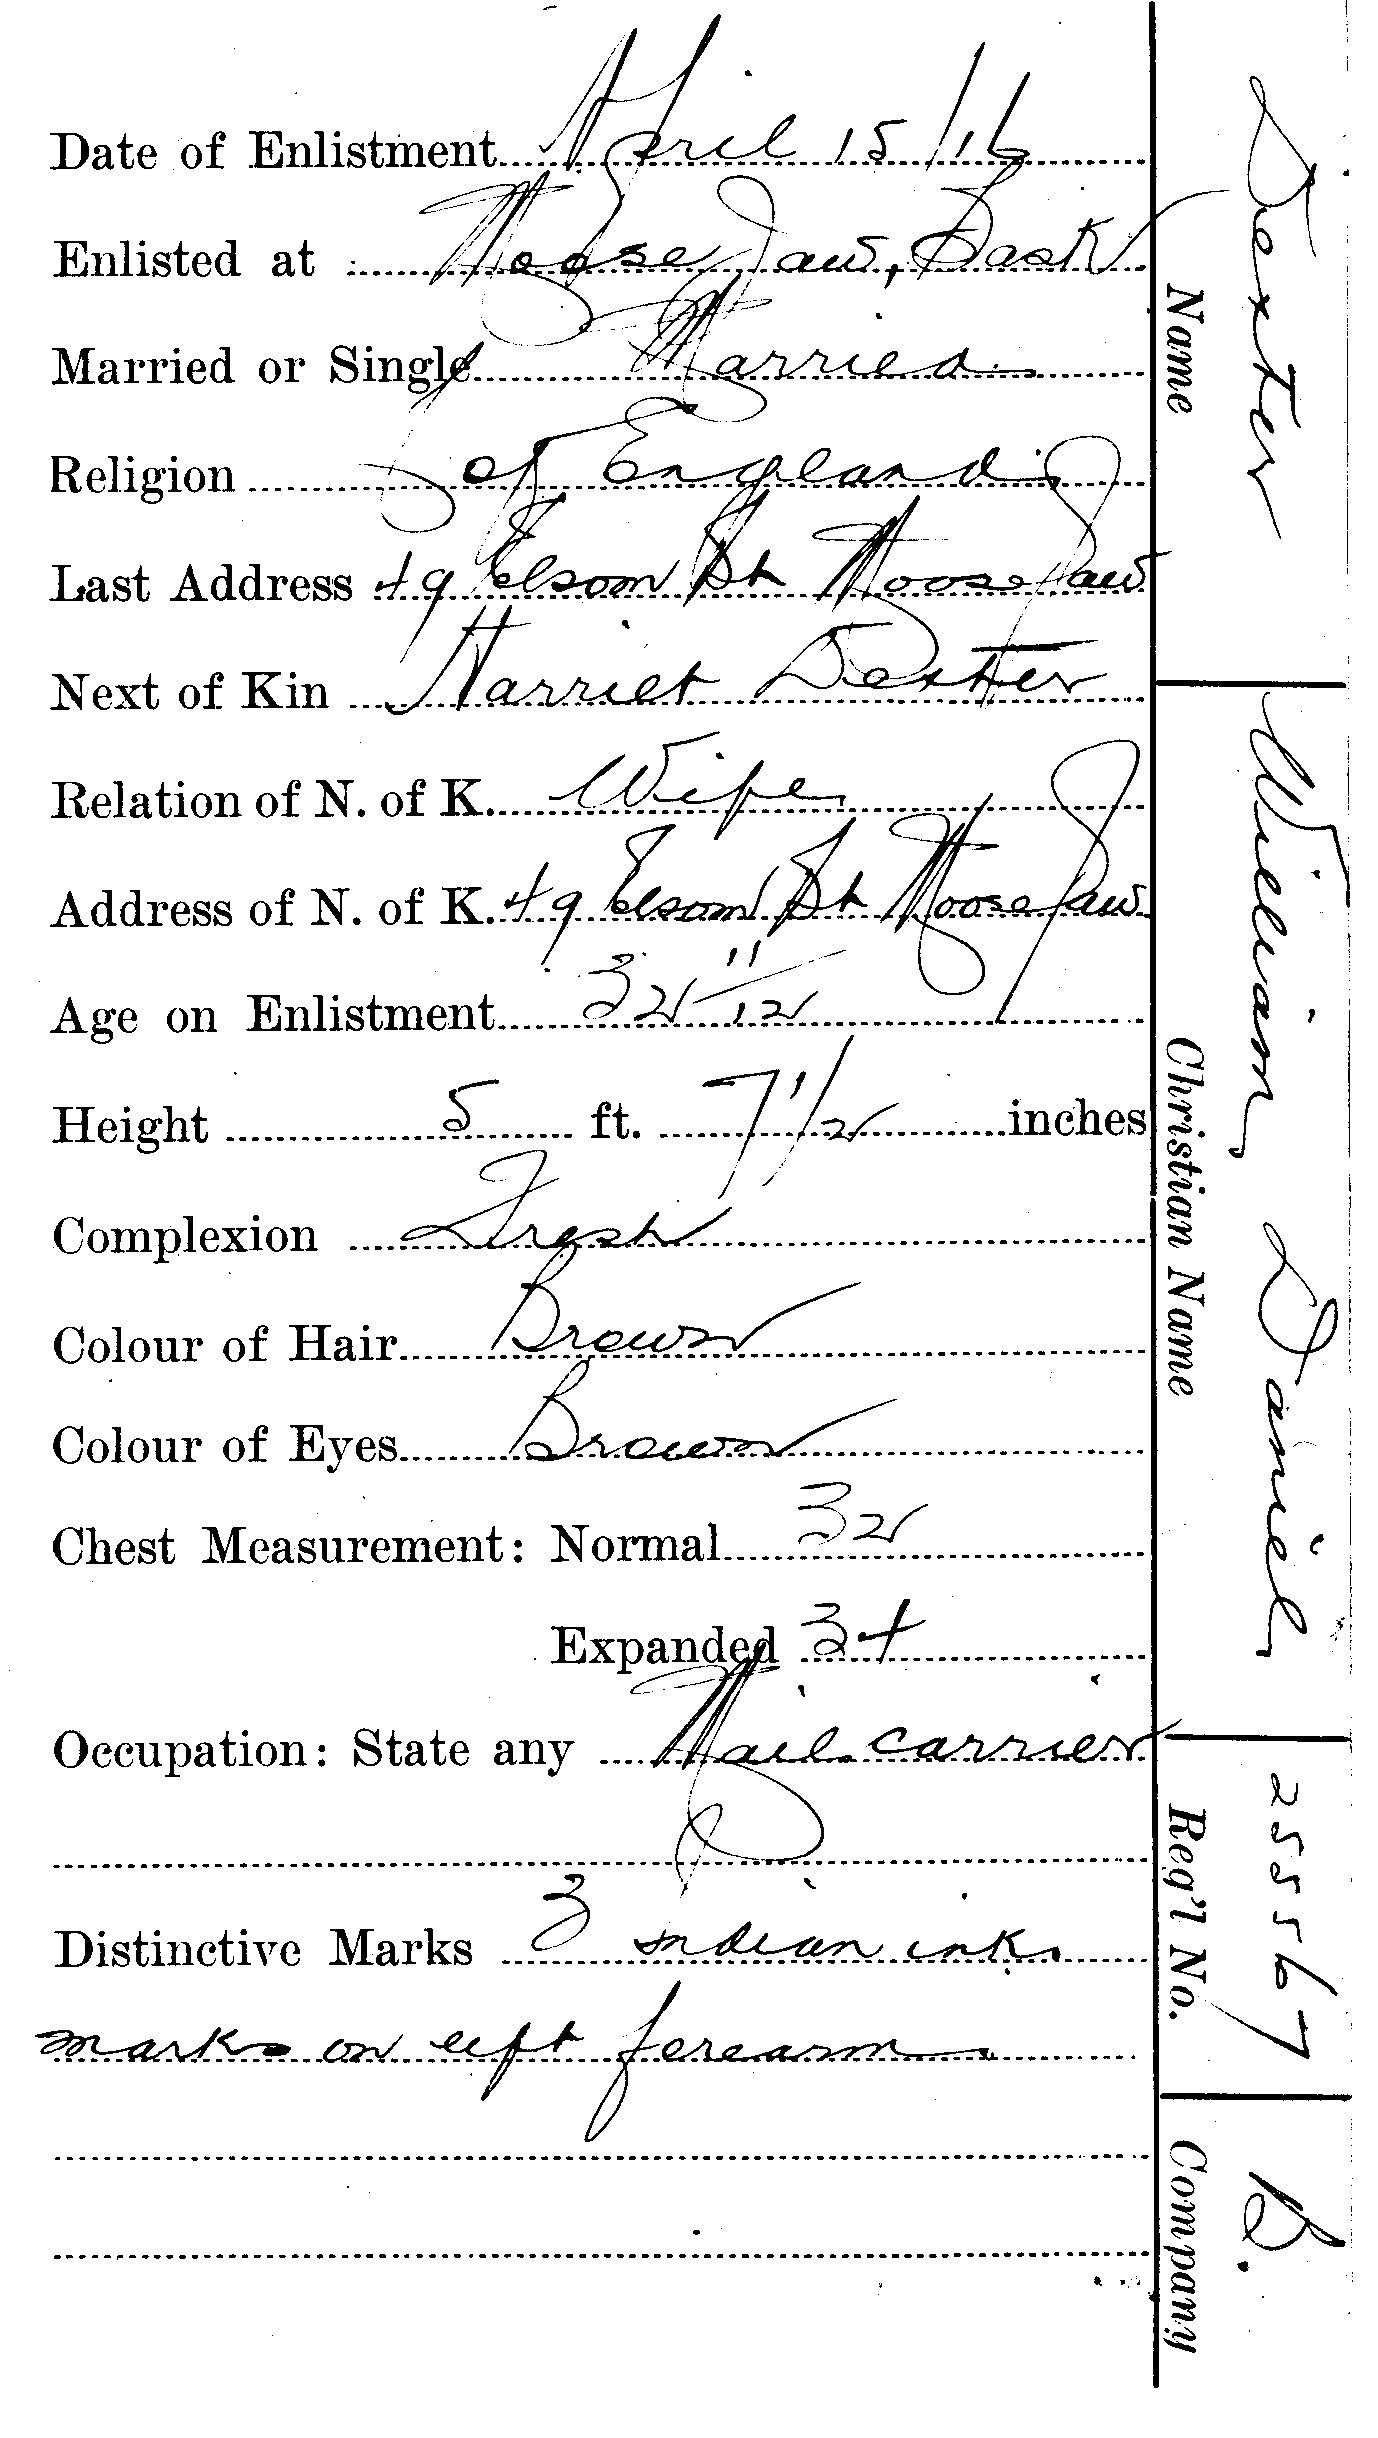 Date of Enlistment April 15/16
Enlisted at Moose Jaw, Sask
Married or Single Married
Religion C of England
Last Address 49 Elsom St Moose Jaw
Next of Kin Harriet Dexter
Relation of N. of K. Wife
Address of N. of K. 49 Elsom St Moose Jaw
Age on Enlistment 32 11/12
Height 5 ft. 7 1/2 inches
Complexion Fresh
Colour of Hair Brown
Colour of Eyes Brown
Chest Measurement: Normal 32
Expanded 34
Occupation: State any Mail carrier
Distinctive Marks 3 indian ink
marks on left forearm
Dexter
Name
William Daniel
Christian Name
255567
Reg'l No.
B.
Company